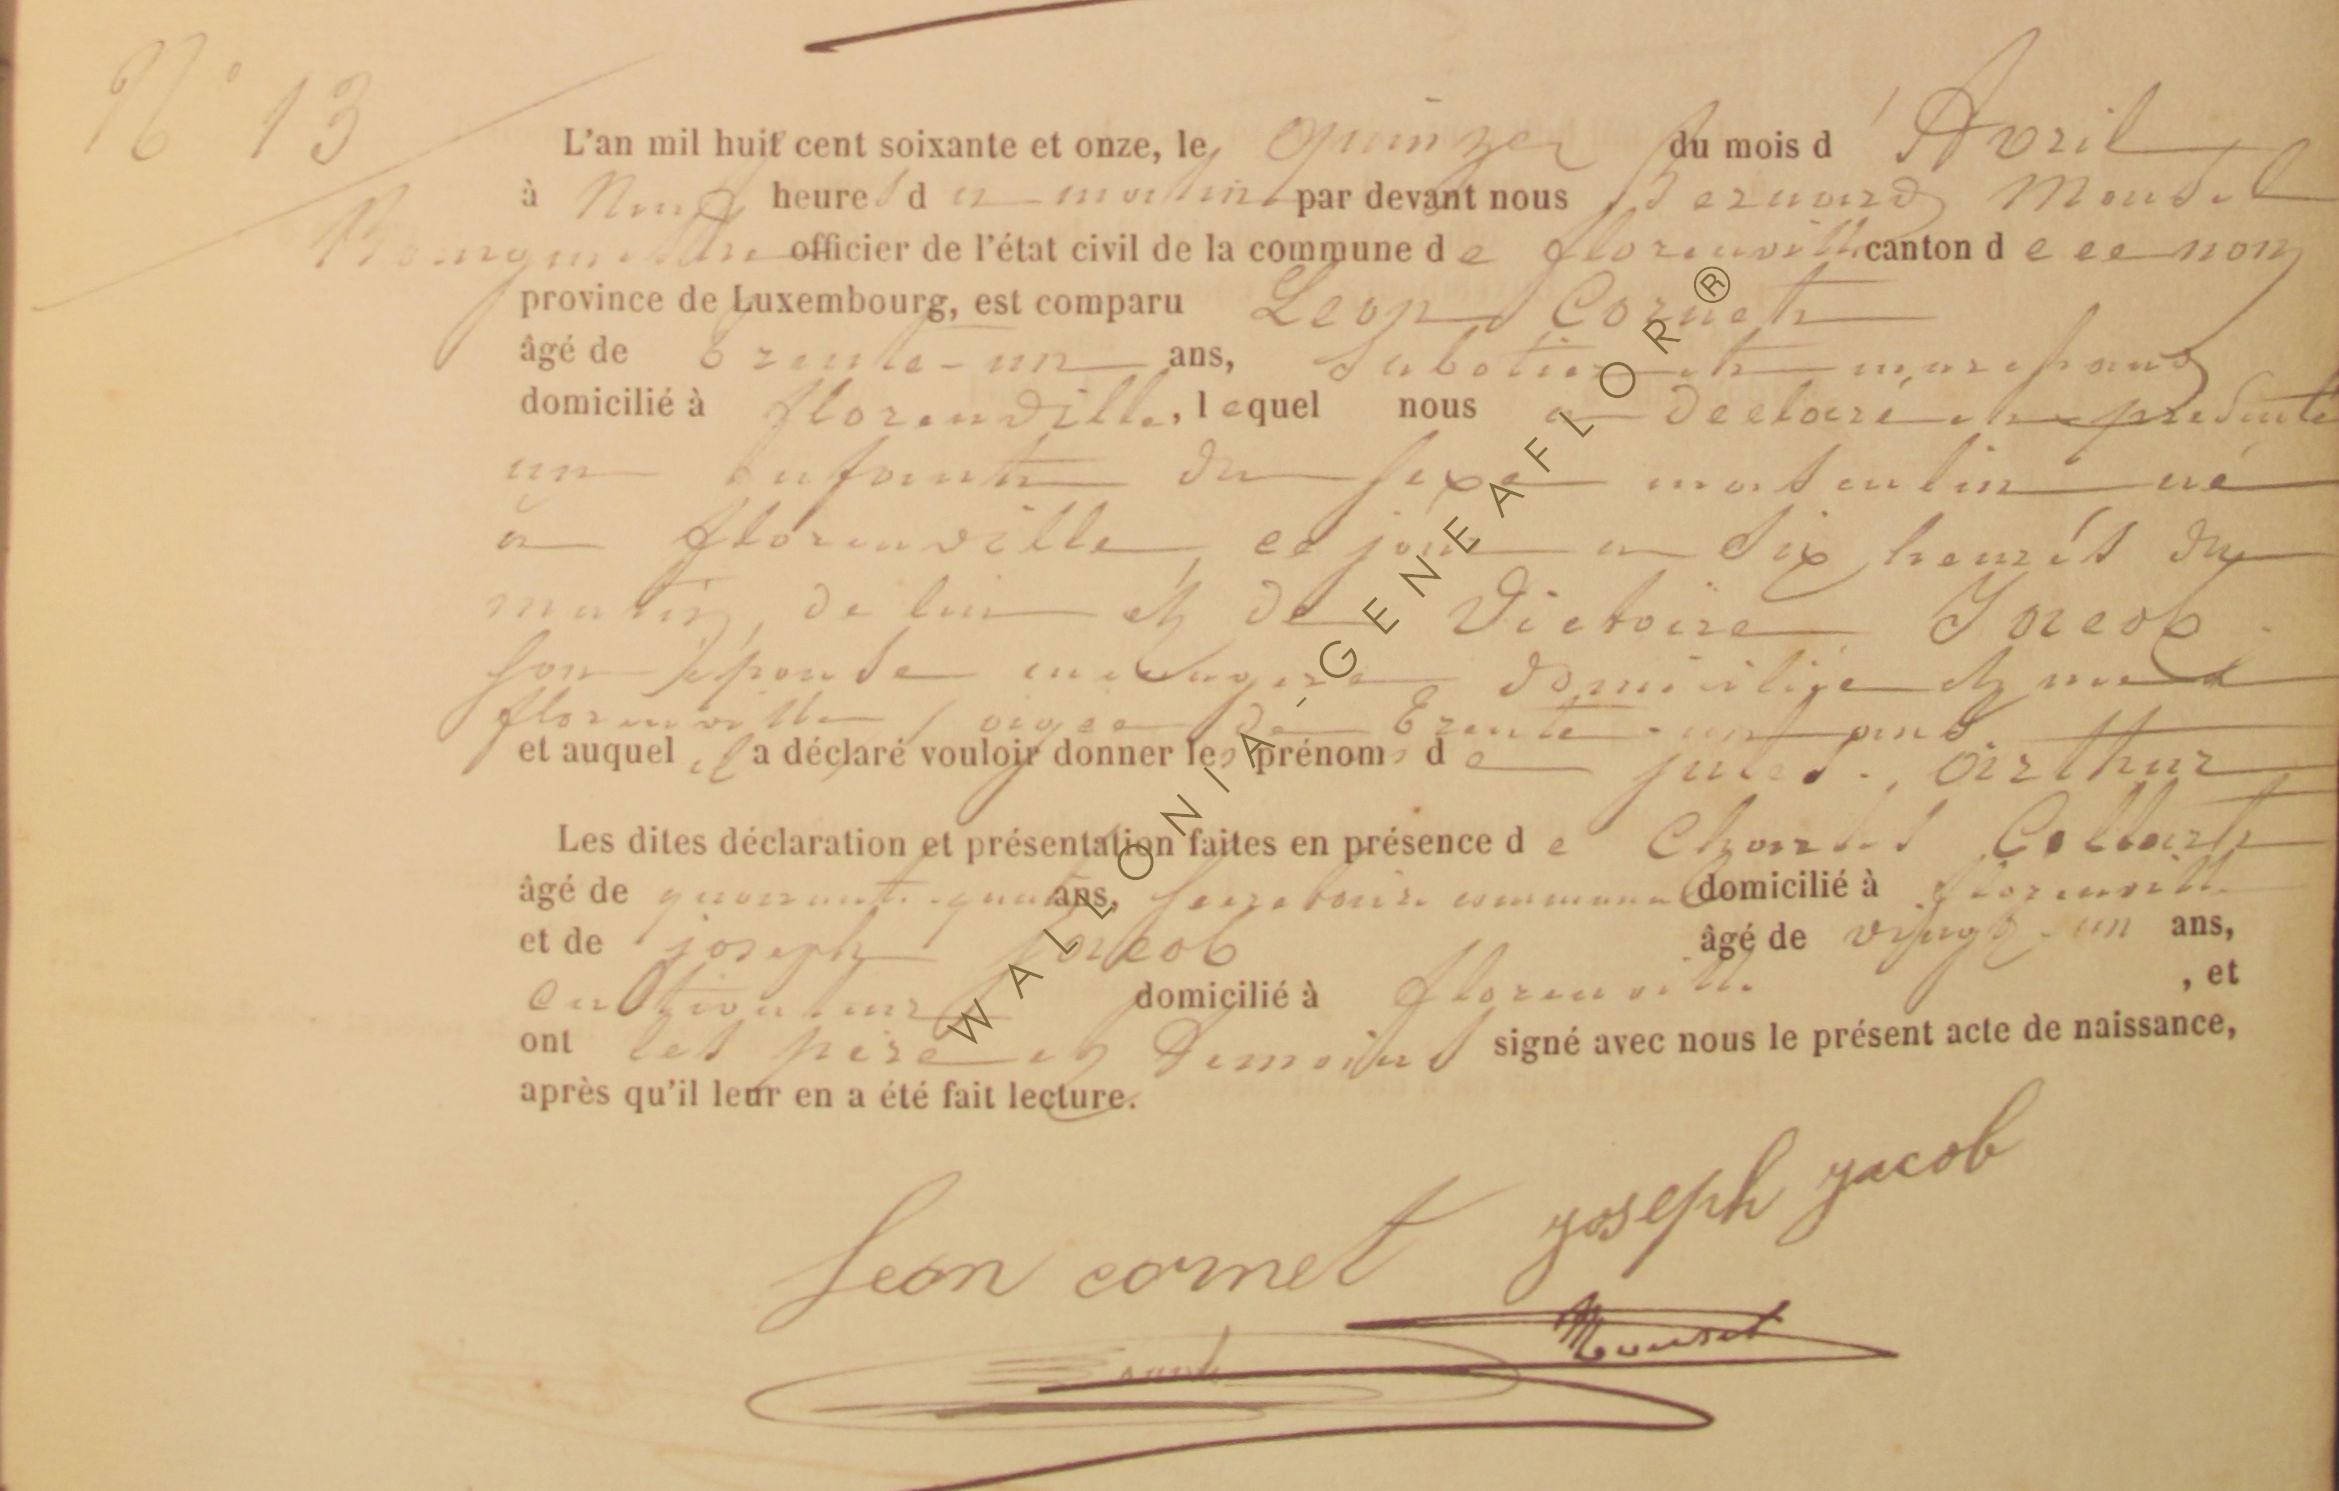 N° 13
L'an mil huit cent soixante et onze, le quinze du mois d'Avril
à Neuf heures du matin par devant nous Bernard
Bourgmestre officier de l'état civil de la commune de florenville canton de ce nom
province de Luxembourg, est comparu Leon Cornet
âgé de trente-un ans, Sabotier et
domicilié à florenville, lequel nous a declaré et presenté
un enfant du sexe masculin né
à florenville, ce jour a six heures du
matin, de lui et de Victoire Jacob
son épouse menagere domiciliée
florenville, agee de trente-un ans
et auquel il a déclaré vouloir donner les prénoms de jules, Arthur
Les dites déclaration et présentation faites en présence de Charles Collart
âgé de quarante-quatre ans, secretaire communal domicilié à florenville
et de joseph jacob âgé de vingt-un ans,
cultivateur domicilié à florenville, et
ont les père et temoins signé avec nous le présent acte de naissance,
après qu'il leur en a été fait lecture.
joseph jacob
Leon cornet
WALLONIA-GENEAFLOR®